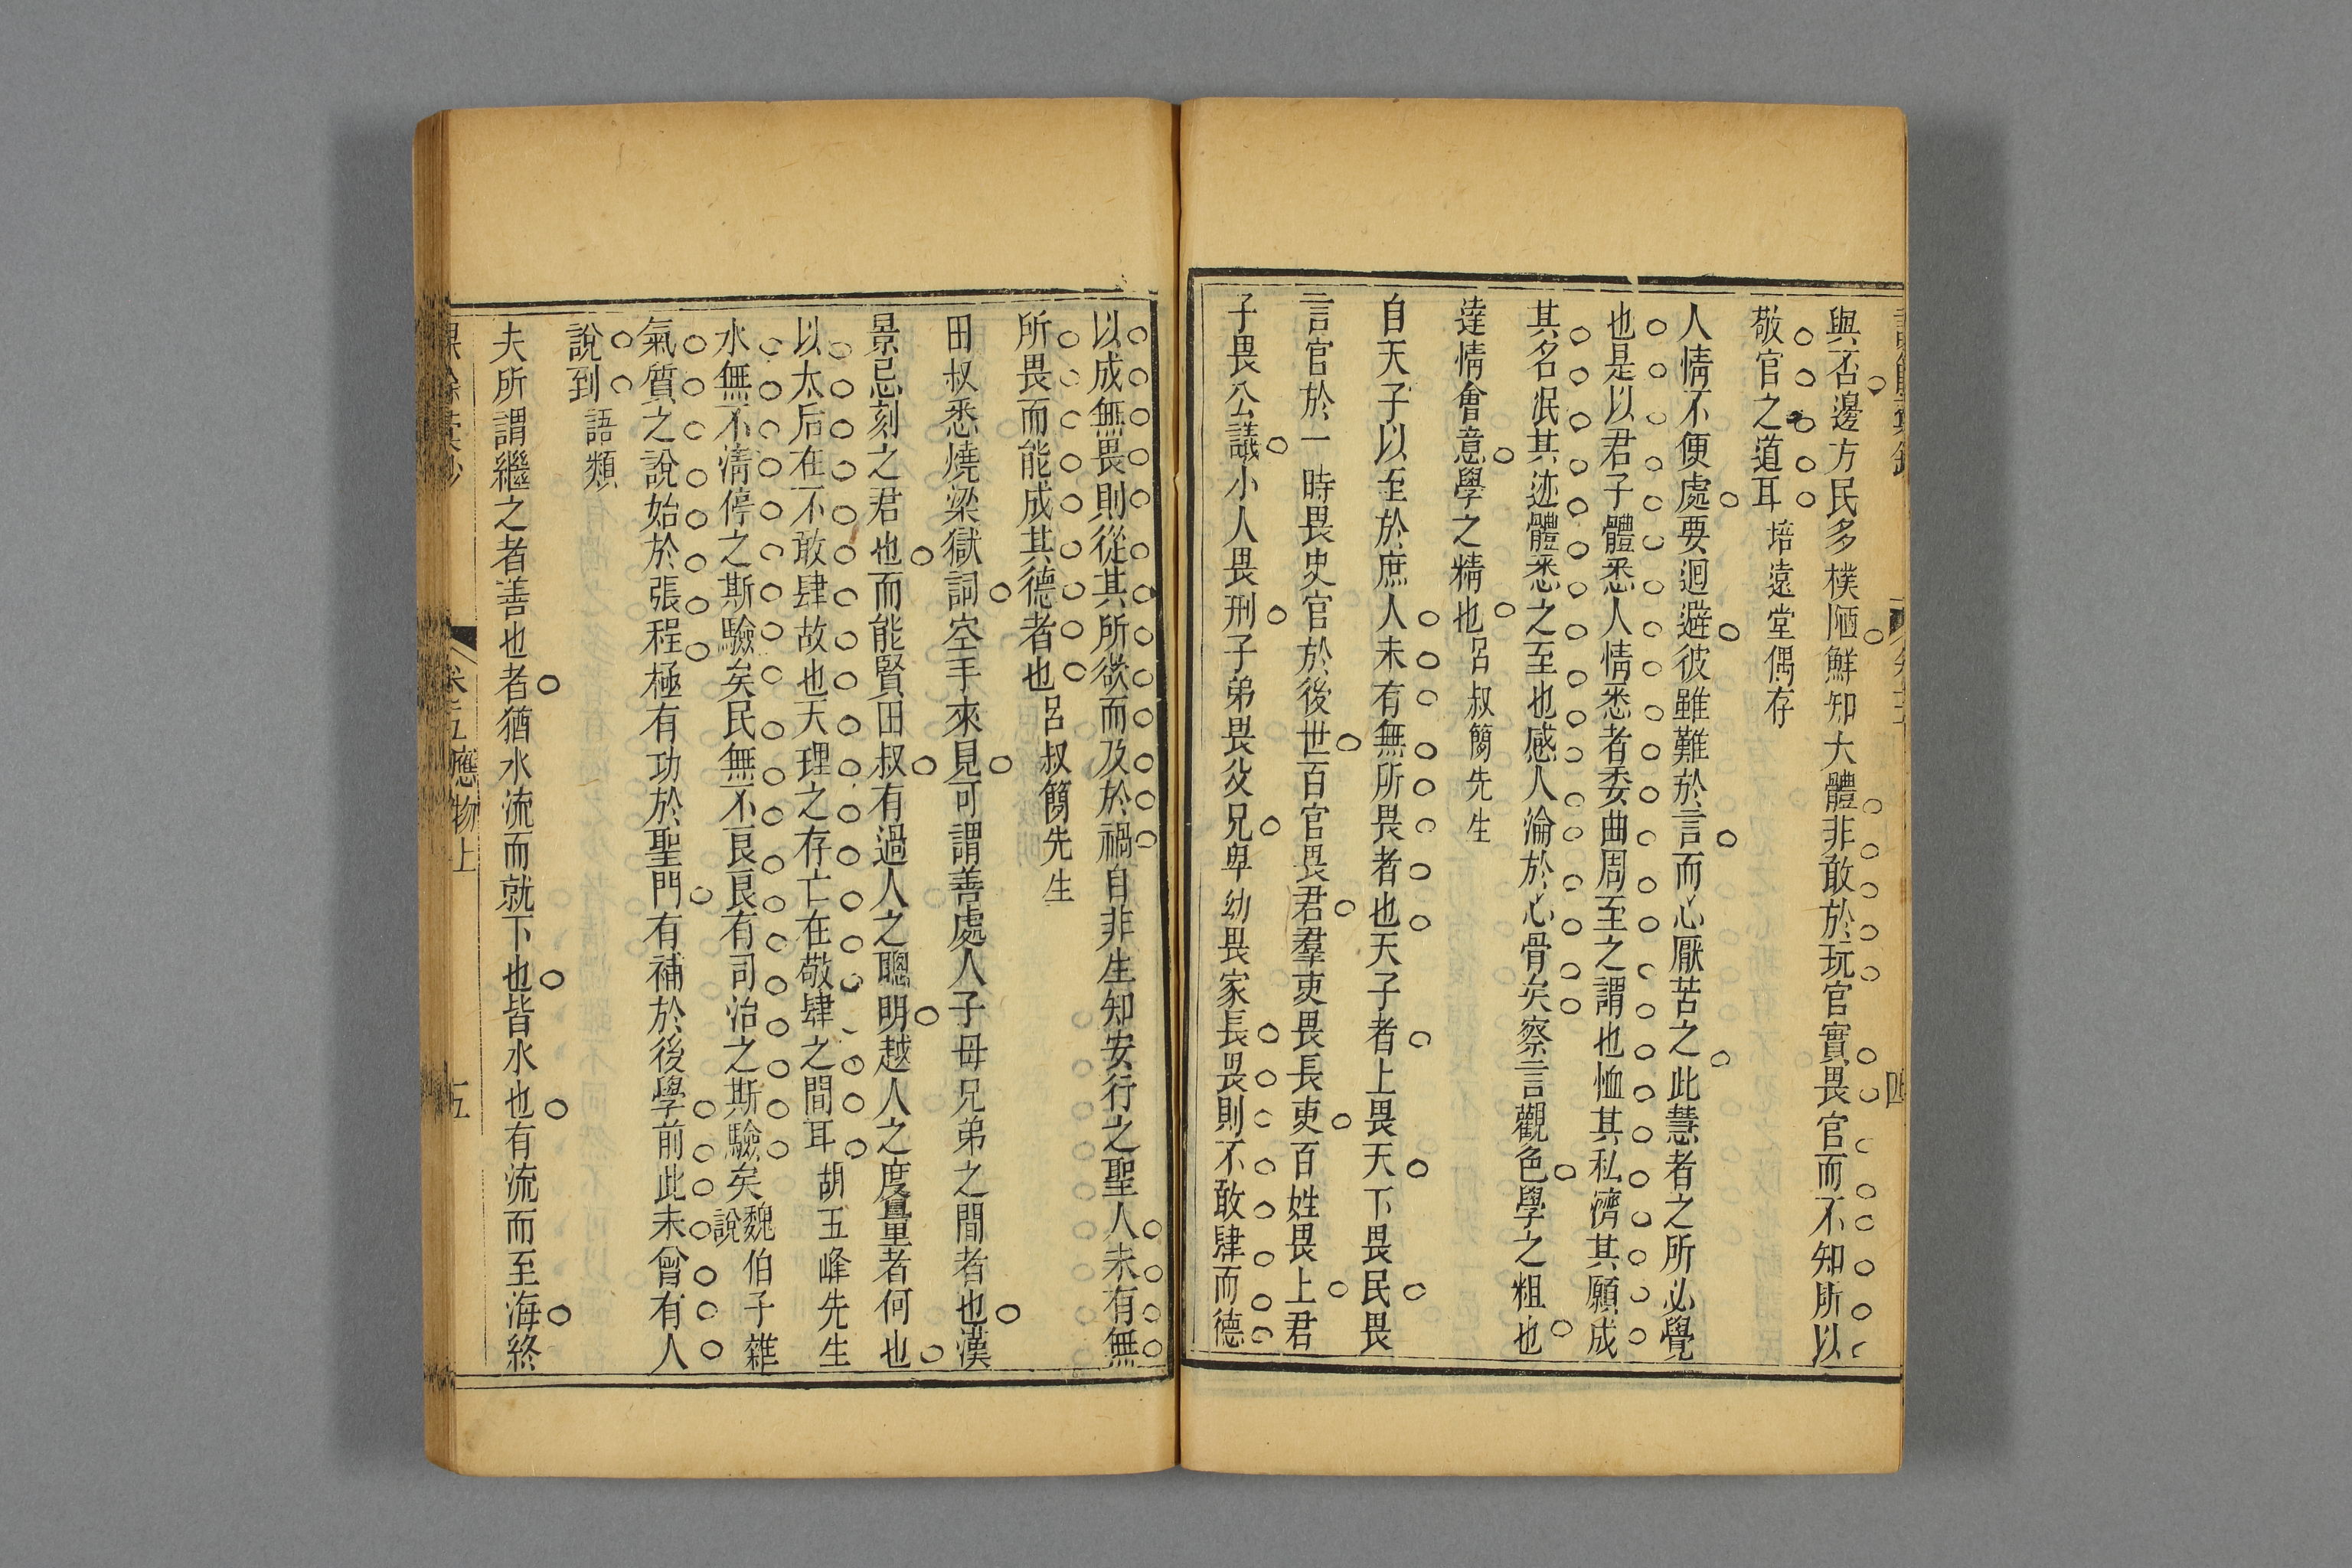 與否邊方民多樸陋鮮知大體非敢於玩官實畏官而不知所以
敬官之道耳 培遠堂偶存
人情不便處要迴避彼雖難於言而心厭苦之此慧者之所必覺
也是以君子體悉人情悉者委曲周至之謂也恤其私濟其願成
其名泯其迹體悉之至也感人淪於心骨矣察言觀色學之粗也
達情會意學之精也 呂叔簡先生
自天子以至於庶人未有無所畏者也天子者上畏天下畏民畏
言官於一時畏史官於後世百官畏君羣吏畏長吏百姓畏上君
子畏公議小人畏刑子弟畏父兄卑幼畏家長畏則不敢肆而德
以成無畏則從其所欲而及於禍自非生知安行之聖人未有無
所畏而能成其德者也 呂叔簡先生
田叔悉燒梁獄詞空手來見可謂善處人子母兄弟之間者也漢
景忌刻之君也而能賢田叔有過人之聰明越人之度量者何也
以太后在不敢肆故也天理之存亡在敬肆之間耳 胡五峰先生
水無不淸停之斯驗矣民無不良良有司治之斯驗矣 魏伯子雜說
氣質之說始於張程極有功於聖門有補於後學前此未曾有人
說到 語類
夫所謂繼之者善也者猶水流而就下也皆水也有流而至海終
卷五應物上
五